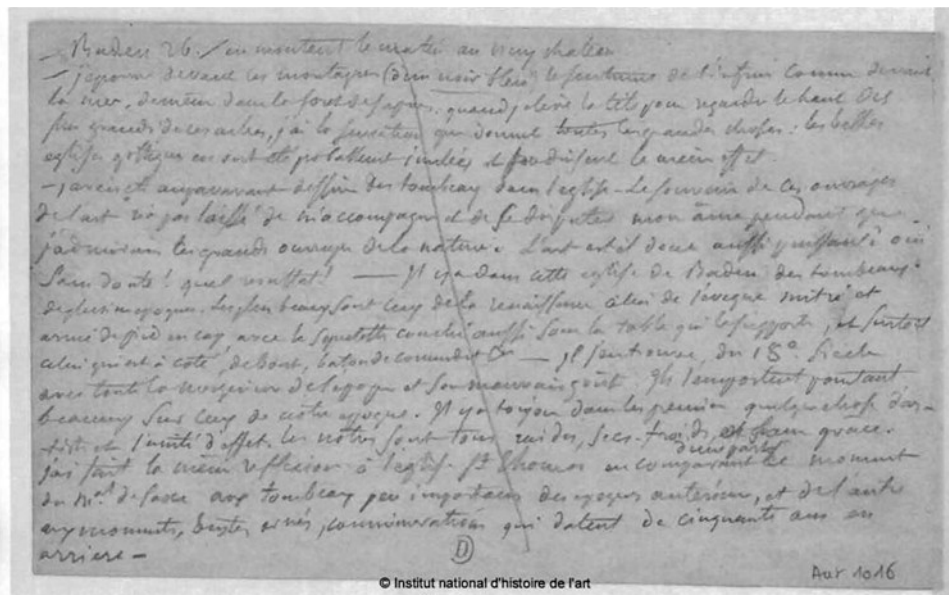 - Baden 26. / en montant le matin au vieux chateau
- j'éprouve devant les montagnes (d'un noir bleu) le sentiment de l'infini comme devant
la mer, de même dans la foret de sapins. quand j'eleve la tête pour regarder le haut des
plus grands de ces arbres, j'ai la sensation que donnent toutes les grandes choses : les belles
eglises gothiques en sont probablement imitées et produisent le même effet.
- j'avais auparavant dessiné des tombeaux dans l'eglise - Le souvenir de ces ouvrages
de l'art n'a pas laissé de m'accompagner et de se disputer mon âme pendant que
j'admirais les grands ouvrages de la nature. L'art est il donc aussi puissant ? oui
sans doute ! quel resultat ! — Il y a dans cette eglise de Baden des tombeaux
de plusieurs epoques. Les plus beaux sont ceux de la renaissance celui de l'eveque mitré et
armé de pied en cap, avec le squelette couché aussi sous la table qui le supporte, et surtout
celui qui est à coté, debout, baton de commandt &a — Il s'en trouve, du 18e siecle
avec toute la de l'epoque et son mauvais gout. Ils l'emportent pourtant
beaucoup sur ceux de notre epoque. Il y a toujours dans les premiers quelque chose d'ar-
tiste et l'unité d'effet. Les nôtres sont tous raides, secs, froids, et sans grace.
J'ai fait la même reflexion à l'eglise St Thomas en comparant d'une part le monument
du Mal de Saxe aux tombeaux peu importans des epoques anterieures, et de l'autre
aux monuments, bustes ornés, commemoratifs qui datent de cinquante ans en
arriere -
D
Aut 1016
© Institut national d'histoire de l'art